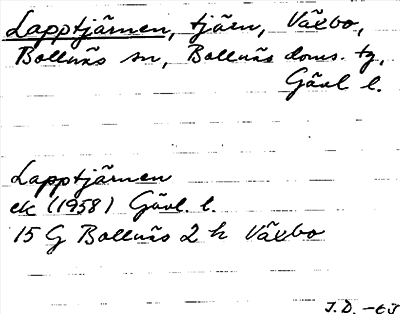 Lapptjärnen, tjärn, Växbo,
Bollnäs sn, Bollnäs doms. tg,
Gävl l.
Lapptjärnen
ek (1958) Gävl. l.
15 G Bollnäs 2 h Växbo
J.D. -65